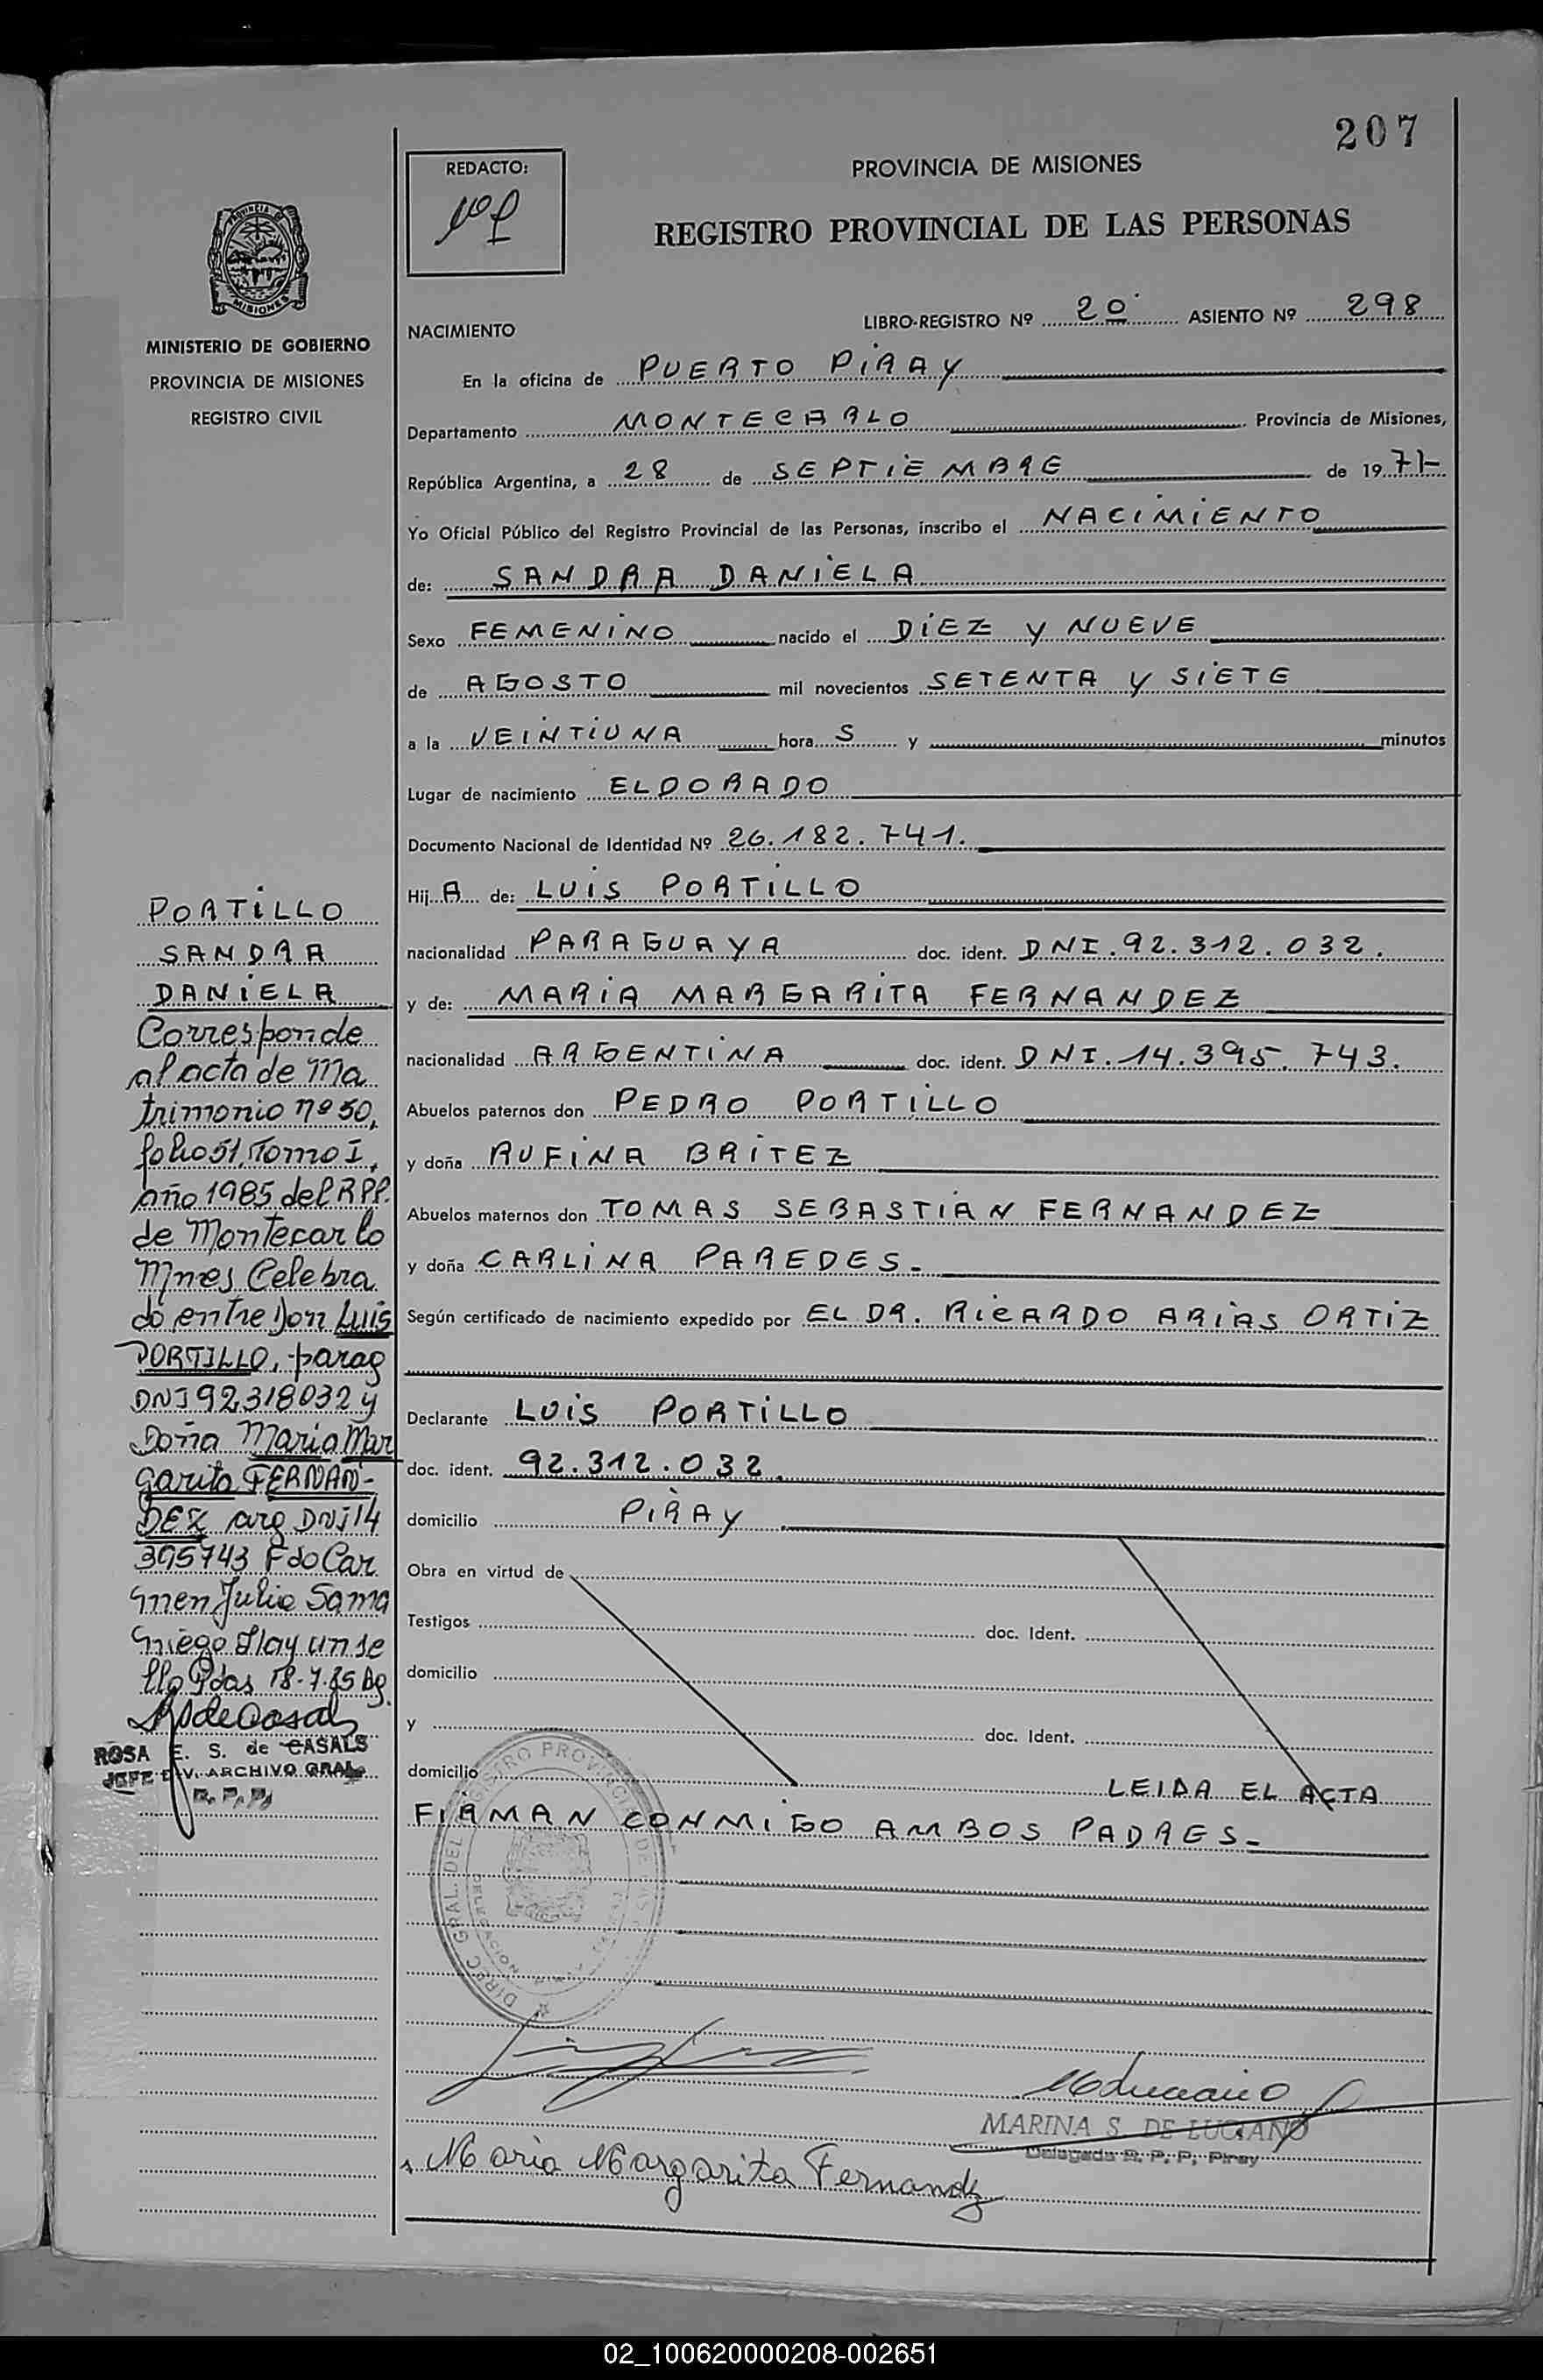 207
REDACTO:
PROVINCIA DE MISIONES
REGISTRO PROVINCIAL DE LAS PERSONAS
PROVINCIA DE
MISIONES
MINISTERIO DE GOBIERNO
PROVINCIA DE MISIONES
REGISTRO CIVIL
NACIMIENTO
LIBRO-REGISTRO Nº 2º ASIENTO Nº 298
En la oficina de PUERTO PIRAY
Departamento MONTECARLO Provincia de Misiones,
República Argentina, a 28 de SEPTIEMBRE de 1977
Yo Oficial Público del Registro Provincial de las Personas, inscribo el NACIMIENTO
de: SANDRA DANIELA
Sexo FEMENINO nacido el DIEZ Y NUEVE
de AGOSTO mil novecientos SETENTA Y SIETE
a la VEINTIUNA hora S y minutos
Lugar de nacimiento ELDORADO
Documento Nacional de Identidad Nº 26.182.741.
Hij A de: LUIS PORTILLO
nacionalidad PARAGUAYA doc. ident. DNI.92.312.032.
y de: MARIA MARGARITA FERNANDEZ
nacionalidad ARGENTINA doc. ident. DNI.14.395.743.
Abuelos paternos don PEDRO PORTILLO
y doña RUFINA BRITEZ
Abuelos maternos don TOMAS SEBASTIAN FERNANDEZ
y doña CARLINA PAREDES.-
Según certificado de nacimiento expedido por EL DR. RICARDO ARIAS ORTIZ
Declarante LUIS PORTILLO
doc. ident. 92.312.032.
domicilio PIRAY
Obra en virtud de
Testigos doc. Ident.
domicilio
y doc. Ident.
domicilio LEIDA EL ACTA
FIRMAN CONMIGO AMBOS PADRES.-
PORTILLO
SANDRA
DANIELA
Corresponde
al acta de Ma
trimonio nº 50,
folio 51, Tomo I,
año 1985 del RPP.
de Montecarlo
Mnes Celebra
do entre Don Luis
PORTILLO, parag
DNI 92,318032 y
Doña Maria Mar
garita FERNAN-
DEZ arg DNI 14
395743 Fdo Car
men Julia Sama
niego Hay un se
llo Pdas 18-7-85 Ag.
ROSA E. S. de CASALS
JEFE DIV. ARCHIVO GRAL
R. P. P.
DIREC. GRAL. DEL REGISTRO PROVINCIAL DE
MARINA S. DE LUCIANO
Delegada R. P. P. Piray
Maria Margarita Fernandz
02_100620000208-002651